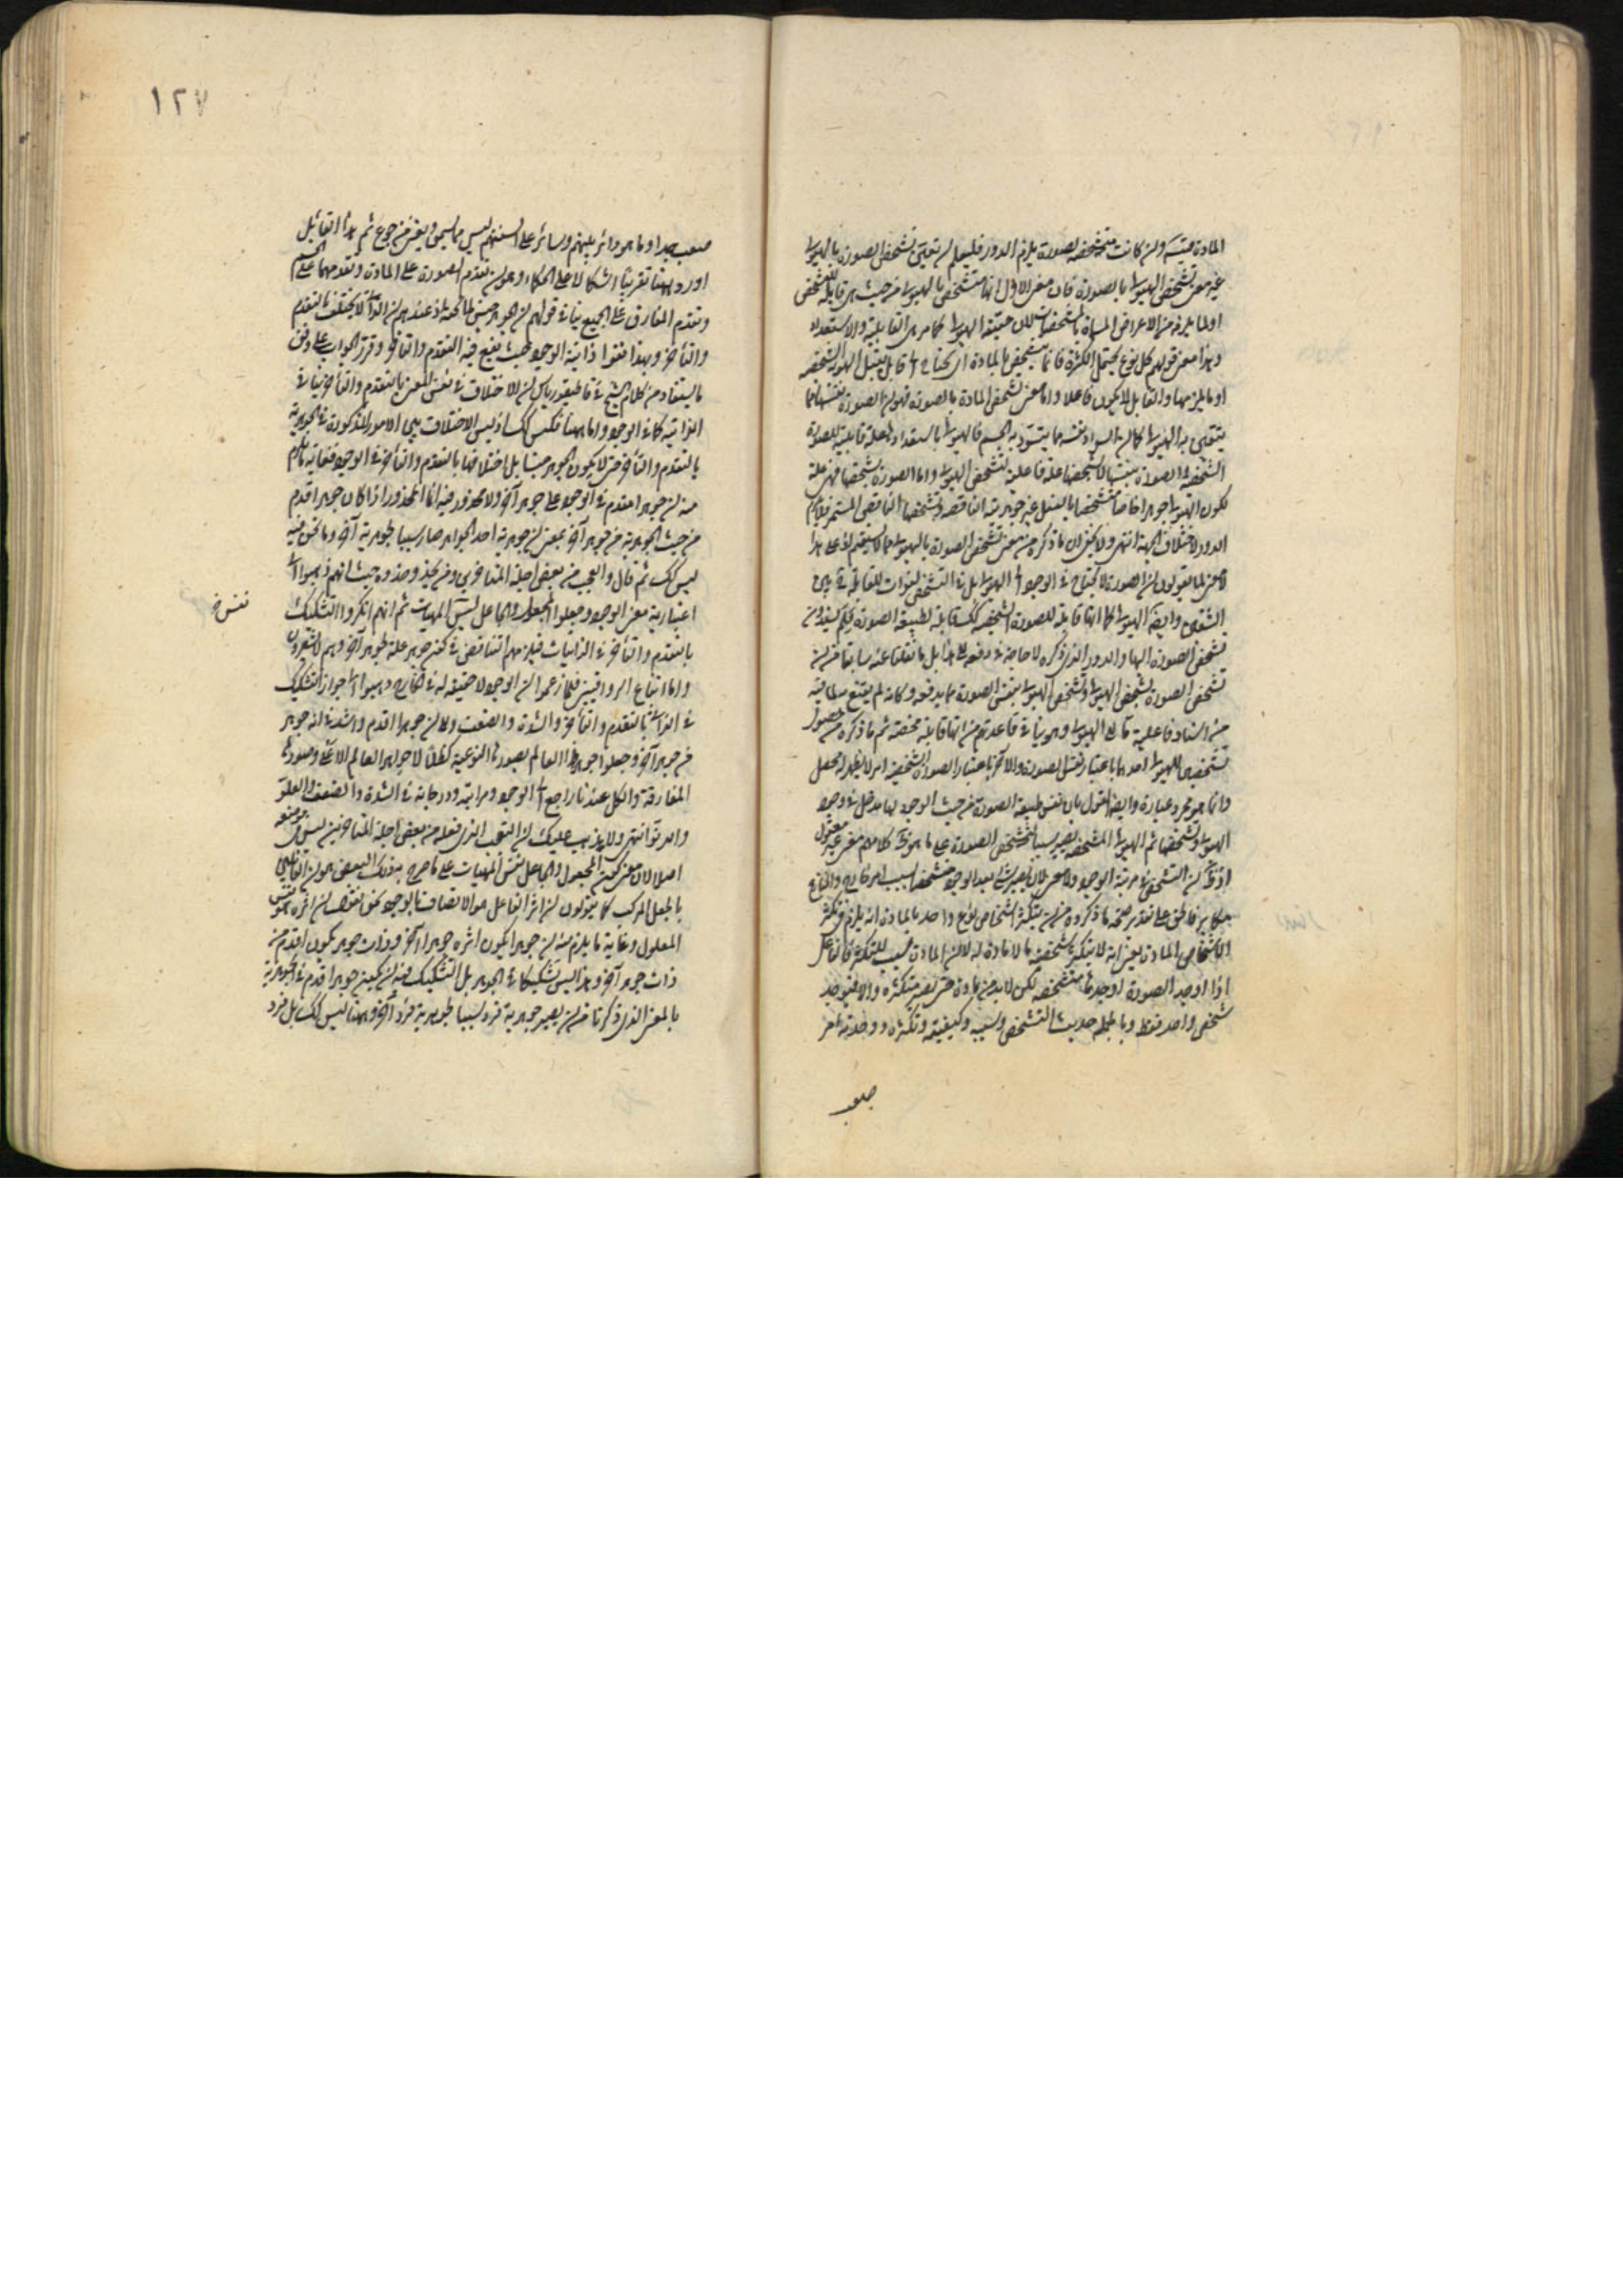 المادة متشخصة بصورة يلزم الدور فليعلم ان تعين تشخص الصورة بالهيولى
غير معنى تشخص الهيولى بالصورة فان معنى الاول انها متشخص بالهيولى من حيث هى قابلة للتشخص
او لما يلزمه من الاعراض المسماة بالمشخصات لان حقيقة الهيولى كما مر هى القابلية والاستعداد
وهذا معنى قولهم كل نوع يحتمل الكثرة فانما يتشخص بالمادة اى يحتاج الى قابل يقبل الهوية الشخصية
او ما يلزمها والقابل لا يكون فاعلا واما معنى تشخص المادة بالصورة فهو ان الصورة بنفسها مما
يتعين به الهيولى كما ان السواد نفسه مما يتسود به الجسم فالهيولى باستعدادها علة قابلية للصورة
الشخصية والصورة بنفسها لا بشخصها علة فاعلية لتشخص الهيولى واما الصورة بشخصها فهى علة
لكون الهيولى جوهرا خاصا متشخصا بالفعل غير جوهريته الناقصة وتشخصها الناقص المستمر فلا يلزم
الدور لاختلاف الجهة انتهى ولا يخفى ان ما ذكره من معنى تشخص الصورة بالهيولى مما لا يستقيم اذ على هذا
لا معنى لما يقولون ان الصورة لا يحتاج فى الوجود الى الهيولى بل فى التشخص
وايضا الهيولى كما انها قابلة للصورة الشخصية كك قابلة لطبيعة الصورة فلم يفردون
تشخص الصورة اليها والدور الذى ذكره لا حاجة فى دفعه الى هذا بل ما نقلنا عنه سابقا من ان
تشخص الصورة بتشخص الهيولى وتشخص الهيولى بنفس الصورة مما يدفعه وكانه لم يقنع
من اسناد فاعلية ما الى الهيولى وهو ينافى قاعدتهم من انها قابلة محضة ثم ما ذكره من حصول
تشخصين للهيولى احدهما باعتبار نفس الصورة والآخر باعتبار الصورة الشخصية امر لا يظهر له محصل
وانما هو مجرد عبارة وايضا القول بان نفس طبيعة الصورة من حيث الوجود لها مدخل فى وجود
الهيولى وتشخصها ثم الهيولى المتشخصة يصير سببا لتشخص الصورة على ما هو ظ كلامهم معنى غير معقول
اذ ظ ان التشخص فى مرتبة الوجود ولا معنى لان يصير شئ بعد الوجود متشخصا بسبب امر خارج
مكابر فالحق على تقدير صحة ما ذكروه من ان يتكثر اشخاص نوع واحد بالمادة انه يلزم فى تكثر
الاشخاص المادة يعنى انه لا يتكثر شخصية ما لا مادة له لا ان المادة سبب للتكثر فالفاعل
اذا اوجد الصورة اوجدها متشخصة لكن لا بد من مادة حتى يصير متكثرة والا فيوجد
شخص واحد فقط وبالجملة حديث التشخص وسببه وكيفيته وتكثره ووحدته امر
صعب
١٢٧
صعب جدا وما هو دائر بينهم وسائر على السنتهم ليس مما يسمن ويغنى من جوع ثم هذا القائل
اورد ههنا تقريبا اشكالا على الحكماء وهو ان تقدم الصورة على المادة وتقدمهما على الجسم
وتقدم المفارق على الجميع ينافى قولهم ان الجوهر جنس لما تحته اذ عندهم ان الذاتى لا يختلف بالتقدم
والتأخر وبهذا نفوا ذاتية الوجود حيث يقع فيه التقدم والتأخر وقرر الجواب على وفق
ما يستفاد من كلام الشيخ فى قاطيغورياس ان الاختلاف فى نفس المعنى بالتقدم والتأخر ينافى
الذاتية كما فى الوجود واما ههنا فليس كك اذ ليس الاختلاف بين الامور المذكورة فى الجوهرية
بالتقدم والتأخر حتى لا يكون الجوهر جنسا بل اختلافها بالتقدم والتأخر فى الوجود فغاية ما لزم
منه ان جوهرا مقدم فى الوجود على جوهر آخر ولا محذور فيه انما المحذور اذا كان جوهر اقدم
من حيث الجوهرية من جوهر آخر بمعنى ان جوهرية احد الجواهر صار سببا لجوهرية آخر وما نحن فيه
ليس كك ثم قال والعجب من بعض اجلة المتأخرين ومن يحذو حذوه حيث انهم ذهبوا الى
اعتبارية معنى الوجود وجعلوا المجعول والجاعل ليس الا المهيات ثم انهم انكروا التشكيك
نفس خ
بالتقدم والتأخر فى الذاتيات فيلزمهم التناقض فى كون جوهر علة لجوهر آخر وهم لا يشعرون
واما اتباع الرواقيين فلما زعموا ان الوجود لا حقيقة له فى الخارج ذهبوا الى جواز التشكيك
فى الذاتى بالتقدم والتأخر والشدة والضعف وكان جوهرا اقدم واشد فى انه جوهر
من جوهر آخر وجعلوا جواهر هذا العالم بصورها النوعية كظلال لجواهر العالم الاعلى وصورها
المفارقة والكل عندنا راجع الى الوجود ومراتبه ودرجاته فى الشدة والضعف والعلو
والدنو انتهى ولا يذهب عليك ان التعجب الذى فعله من بعض اجلة المتأخرين ليس فى موضعه
اصلا لان معنى كون المجعول والجاعل نفس المهيات على ما صرح به ذلك البعض هو ان القائلين
بالجعل المركب كما يقولون ان اثر الفاعل هو الاتصاف بالوجود نحن نقول ان اثره هو نفس
المعلول وغاية ما يلزم منه ان جوهرا يكون اثره جوهرا آخر وذات جوهر يكون اقدم من
ذات جوهر آخر وهذا ليس تشكيكا فى الجوهر بل التشكيك فيه ان يكون جوهرا اقدم فى الجوهرية
بالمعنى الذى ذكرنا من ان يصير جوهرية فرد سببا لجوهرية فرد آخر وههنا ليس كك بل فرد